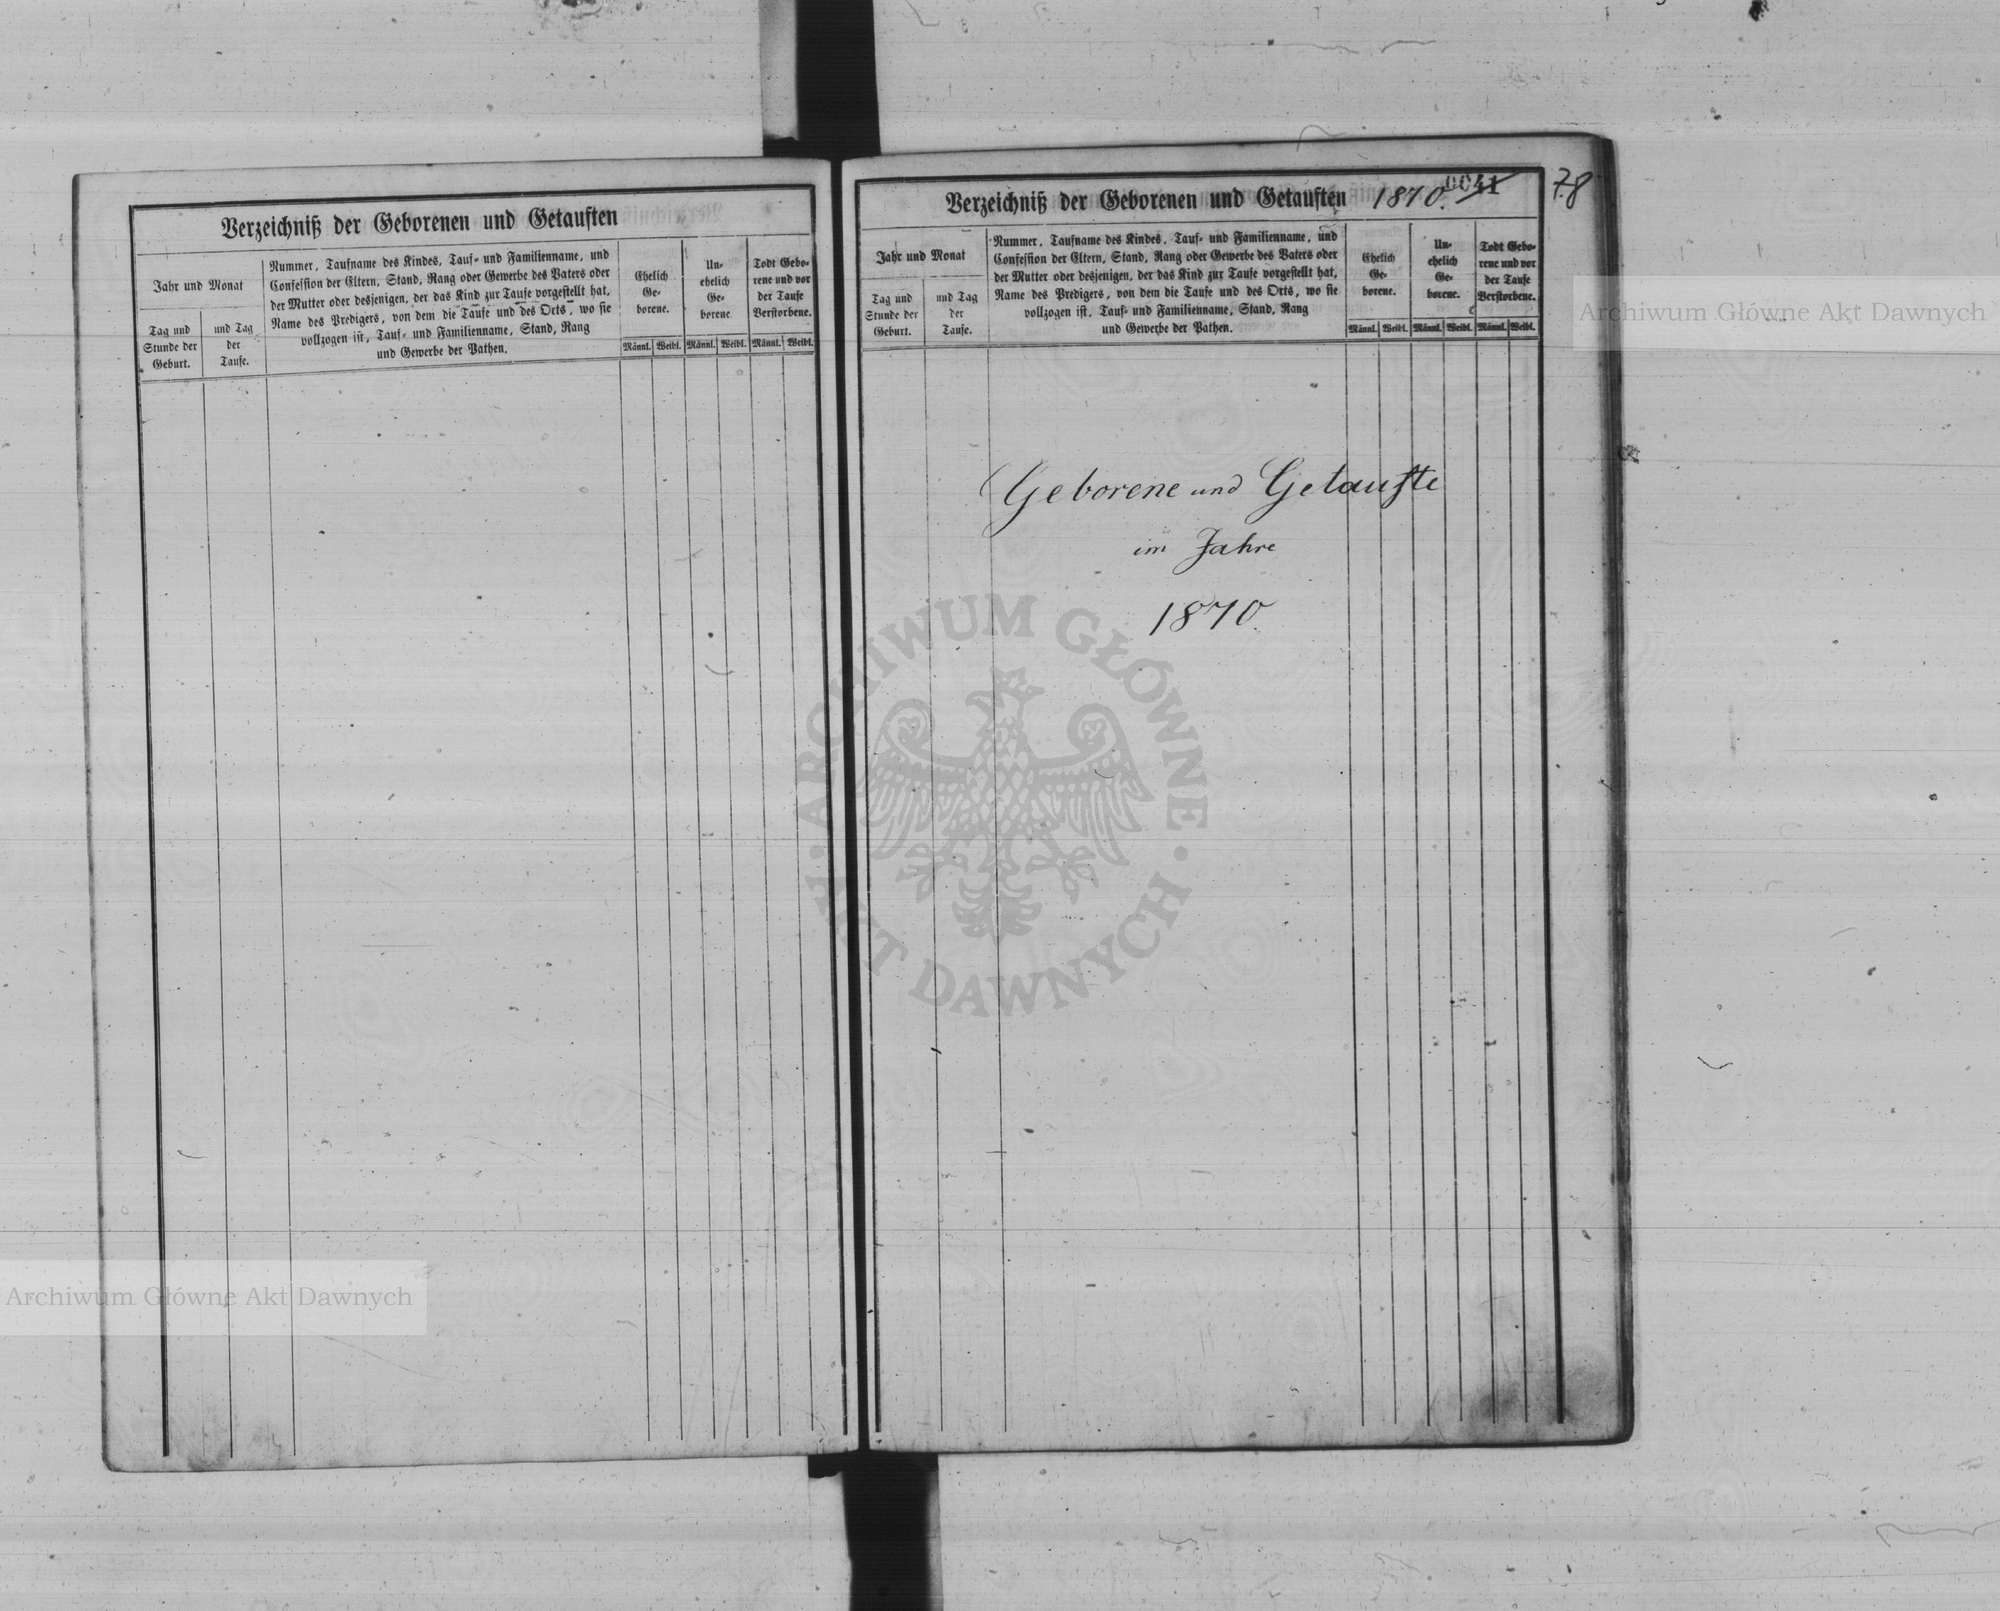 Verzeichniß der Geborenen und Getauften
Jahr und Monat
Tag und
Stunde der
Geburt.
und Tag
der
Taufe.
Nummer, Taufname des Kindes, Tauf- und Familienname, und
Confession der Eltern, Stand, Rang oder Gewerbe des Vaters oder
der Mutter oder desjenigen, der das Kind zur Taufe vorgestellt hat,
Name des Predigers, von dem die Taufe und des Orts, wo sie
vollzogen ist, Tauf- und Familienname, Stand, Rang
und Gewerbe der Pathen.
Ehelich
Ge-
borene.
Un-
ehelich
Ge-
borene.
Todt Gebo-
rene und vor
der Taufe
Verstorbene.
Männl. Weibl. Männl. Weibl. Männl. Weibl.
Verzeichniß der Geborenen und Getauften 1870. 0041
78
Jahr und Monat
Tag und
Stunde der
Geburt.
und Tag
der
Taufe.
Nummer, Taufname des Kindes, Tauf- und Familienname, und
Confession der Eltern, Stand, Rang oder Gewerbe des Vaters oder
der Mutter oder desjenigen, der das Kind zur Taufe vorgestellt hat,
Name des Predigers, von dem die Taufe und des Orts, wo sie
vollzogen ist, Tauf- und Familienname, Stand, Rang
und Gewerbe der Pathen.
Ehelich
Ge-
borene.
Un-
ehelich
Ge-
borene.
Todt Gebo-
rene und vor
der Taufe
Verstorbene.
Männl. Weibl. Männl. Weibl. Männl. Weibl.
Geborene und Getaufte
im Jahre
1870.
ARCHIWUM GŁÓWNE
AKT DAWNYCH
Archiwum Główne Akt Dawnych
Archiwum Główne Akt Dawnych